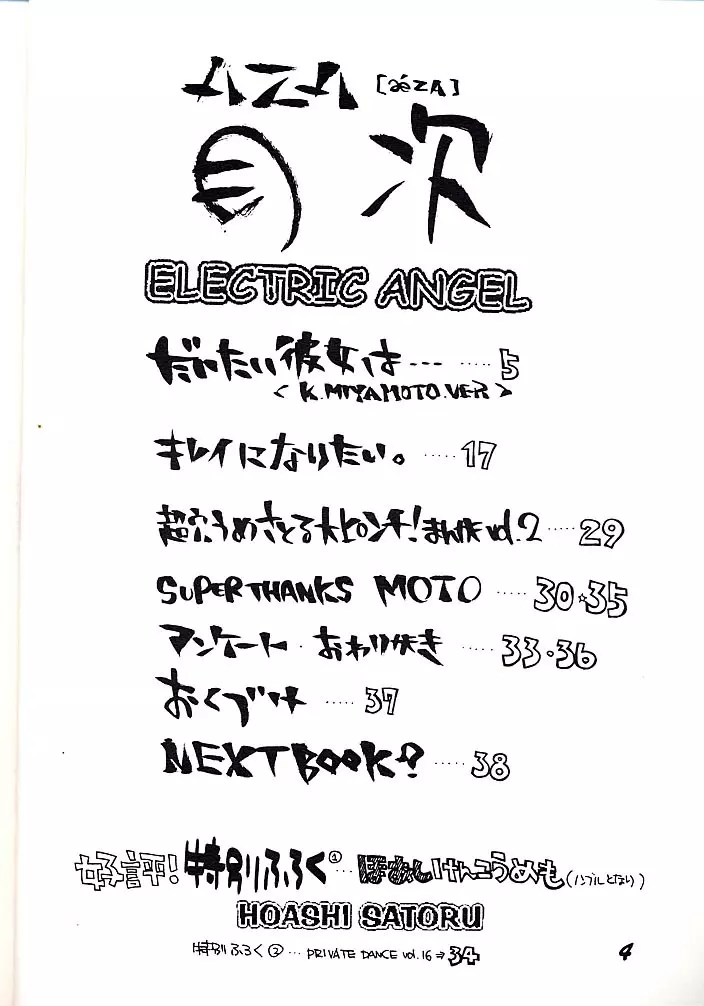 AZA [aéZA]
目次
ELECTRIC ANGEL
だいたい彼女は… ····· 5
< K.MIYAMOTO.VER >
キレイになりたい。 ····· 17
超穴うめさとる大ピンチ!まんがvol.2 ···· 29
SUPER THANKS MOTO ····· 30☆35
アンケート・おわりがき ····· 33・36
おくづけ ····· 37
NEXT BOOK? ····· 38
好評!特別ふろく① ··· ほあしけんこうめも(ノンブルとばり)
HOASHI SATORU
特別ふろく② ··· PRIVATE DANCE vol.16⇒34
4